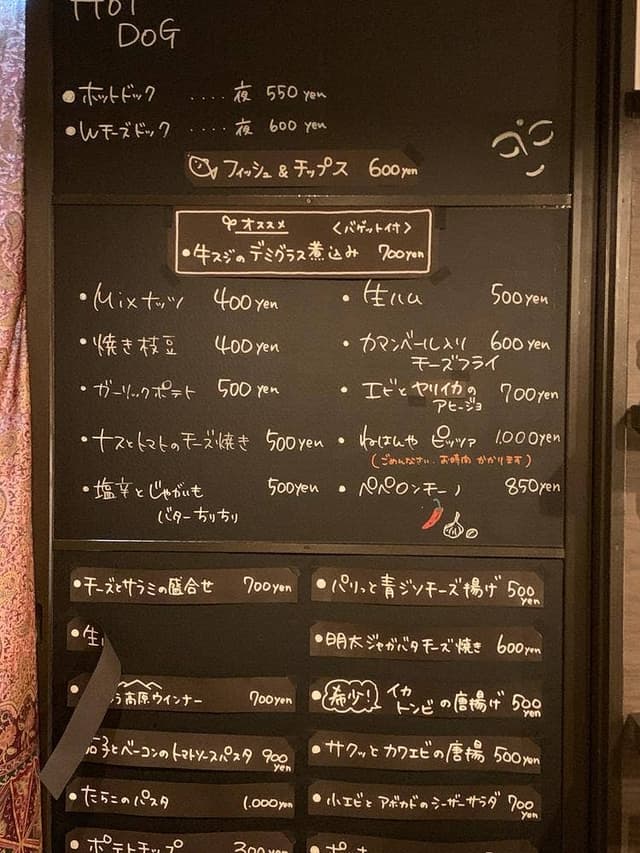 HOT
DOG
●ホットドック ‥‥ 夜 550 yen
●Wチーズドック ‥‥ 夜 600 yen
フィッシュ & チップス 600yen
オススメ 〈バゲット付〉
・牛スジのデミグラス煮込み 700yen
・Mixナッツ 400yen
・焼き枝豆 400yen
・ガーリックポテト 500yen
・ナスとトマトのチーズ焼き 500yen
・塩辛とじゃがいも 500yen
バターちりちり
・生ハム 500yen
・カマンベール入り 600yen
チーズフライ
・エビとヤリイカの 700yen
アヒージョ
・ねはんや ピッツァ 1,000yen
(ごめんなさい、お時間かかります)
・ペペロンチーノ 850yen
●チーズとサラミの盛合せ 700yen
●生
高原ウインナー 700yen
とベーコンのトマトソースパスタ 900yen
●たらこのパスタ 1,000yen
●ポテトチップ 300yen
●パリっと青ジソチーズ揚げ 500yen
●明太ジャガバタチーズ焼き 600yen
●希少! イカ
トンビの唐揚げ 500yen
●サクッとカワエビの唐揚 500yen
●小エビとアボカドのシーザーサラダ 700yen